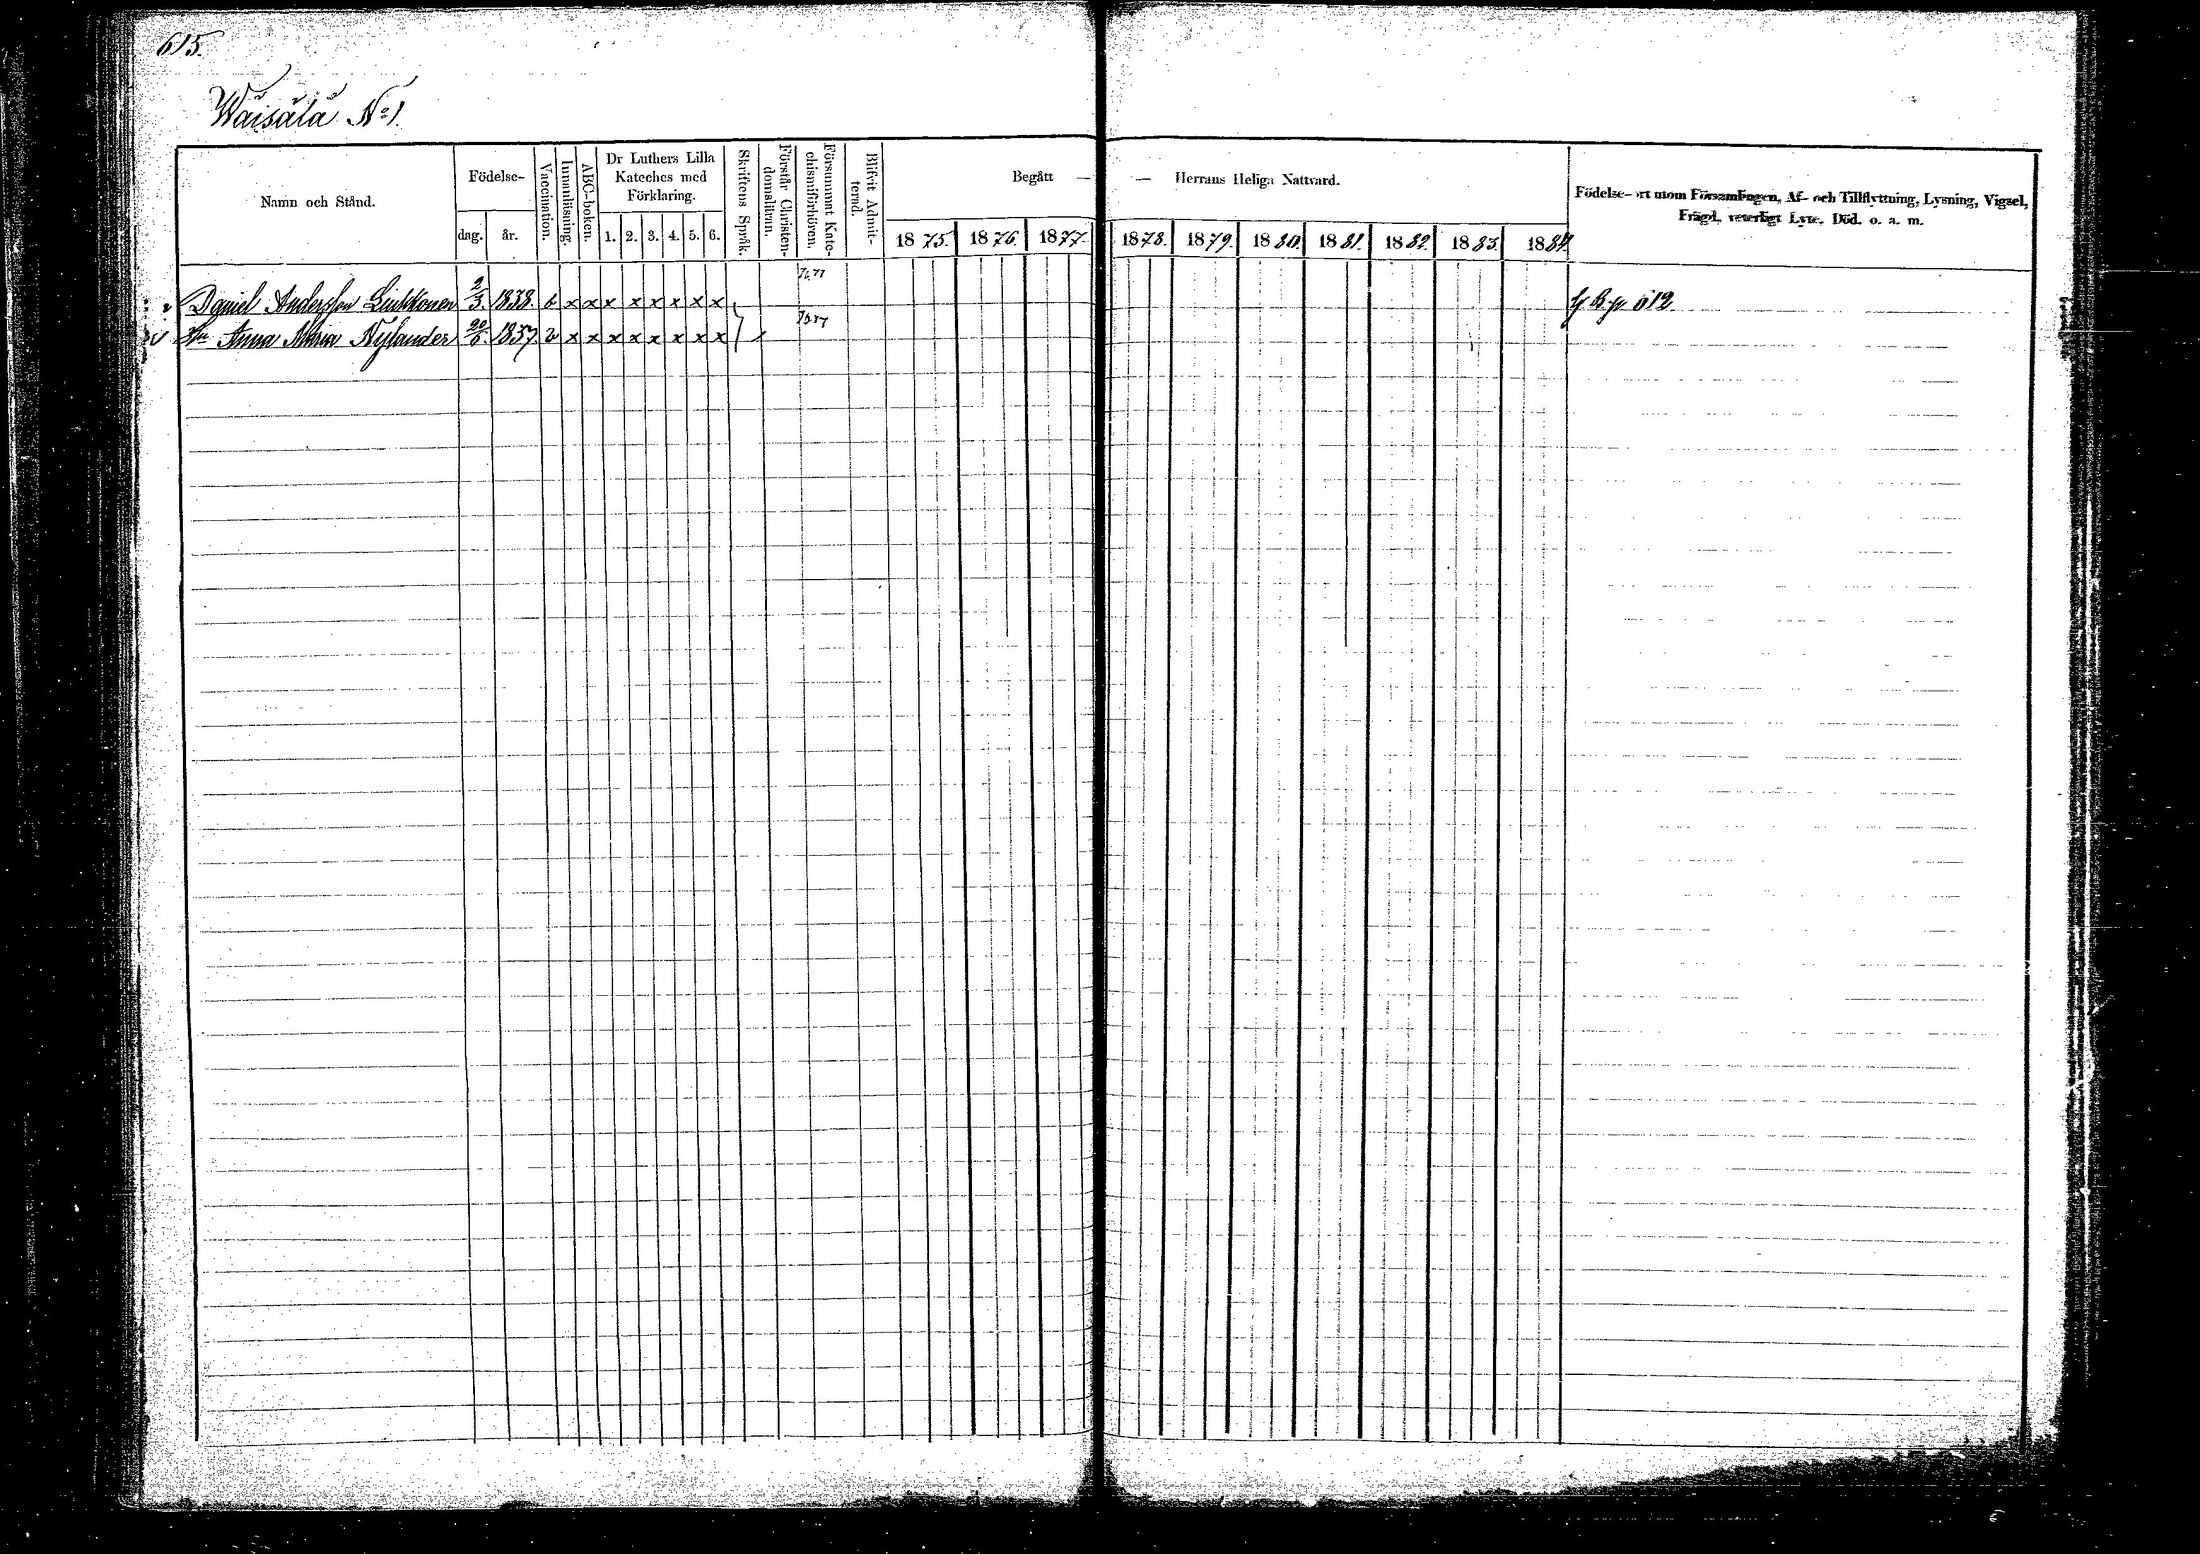 615.
Wäisälä No 1.
Namn och Stånd.
Födelse-
dag. år.
Vaccination.
Innanläsning.
ABC-boken.
Dr Luthers Lilla
Kateches med
Förklaring.
1. 2. 3. 4. 5. 6.
Skriftens Språk.
Förstår Christen-
domsläran.
Försummat Kate-
chismiförhören.
Blifvit Admit-
terad.
Begått — — Herrans Heliga Nattvard.
1875. 1876. 1877. 1878. 1879. 1880. 1881. 1882. 1883. 1884.
Födelse-ort inom Församlingen, Af- och Tillflyttning, Lysning, Vigsel,
Frägd, veterligt Lyte, Död. o. a. m.
76.77
Daniel Andersson Liukkonen 2/3. 1838. v x x x x x x x x
Anna Maria Nylander 20/6. 1837. v x x x x x x x x